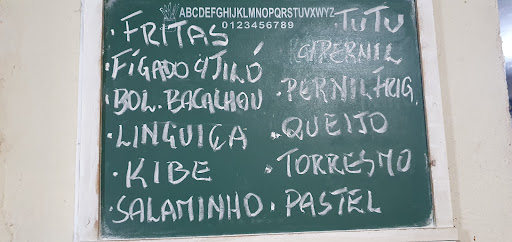 ABCDEFGHIJKLMNOPQRSTUVWXYZ
0123456789
· FRITAS
· FÍGADO C/ JILÓ
· BOL. BACALHAU
· LINGUIÇA
· KIBE
· SALAMINHO
· TUTU
C/ PERNIL
· PERNIL FRIG.
· QUEIJO
· TORRESMO
· PASTEL